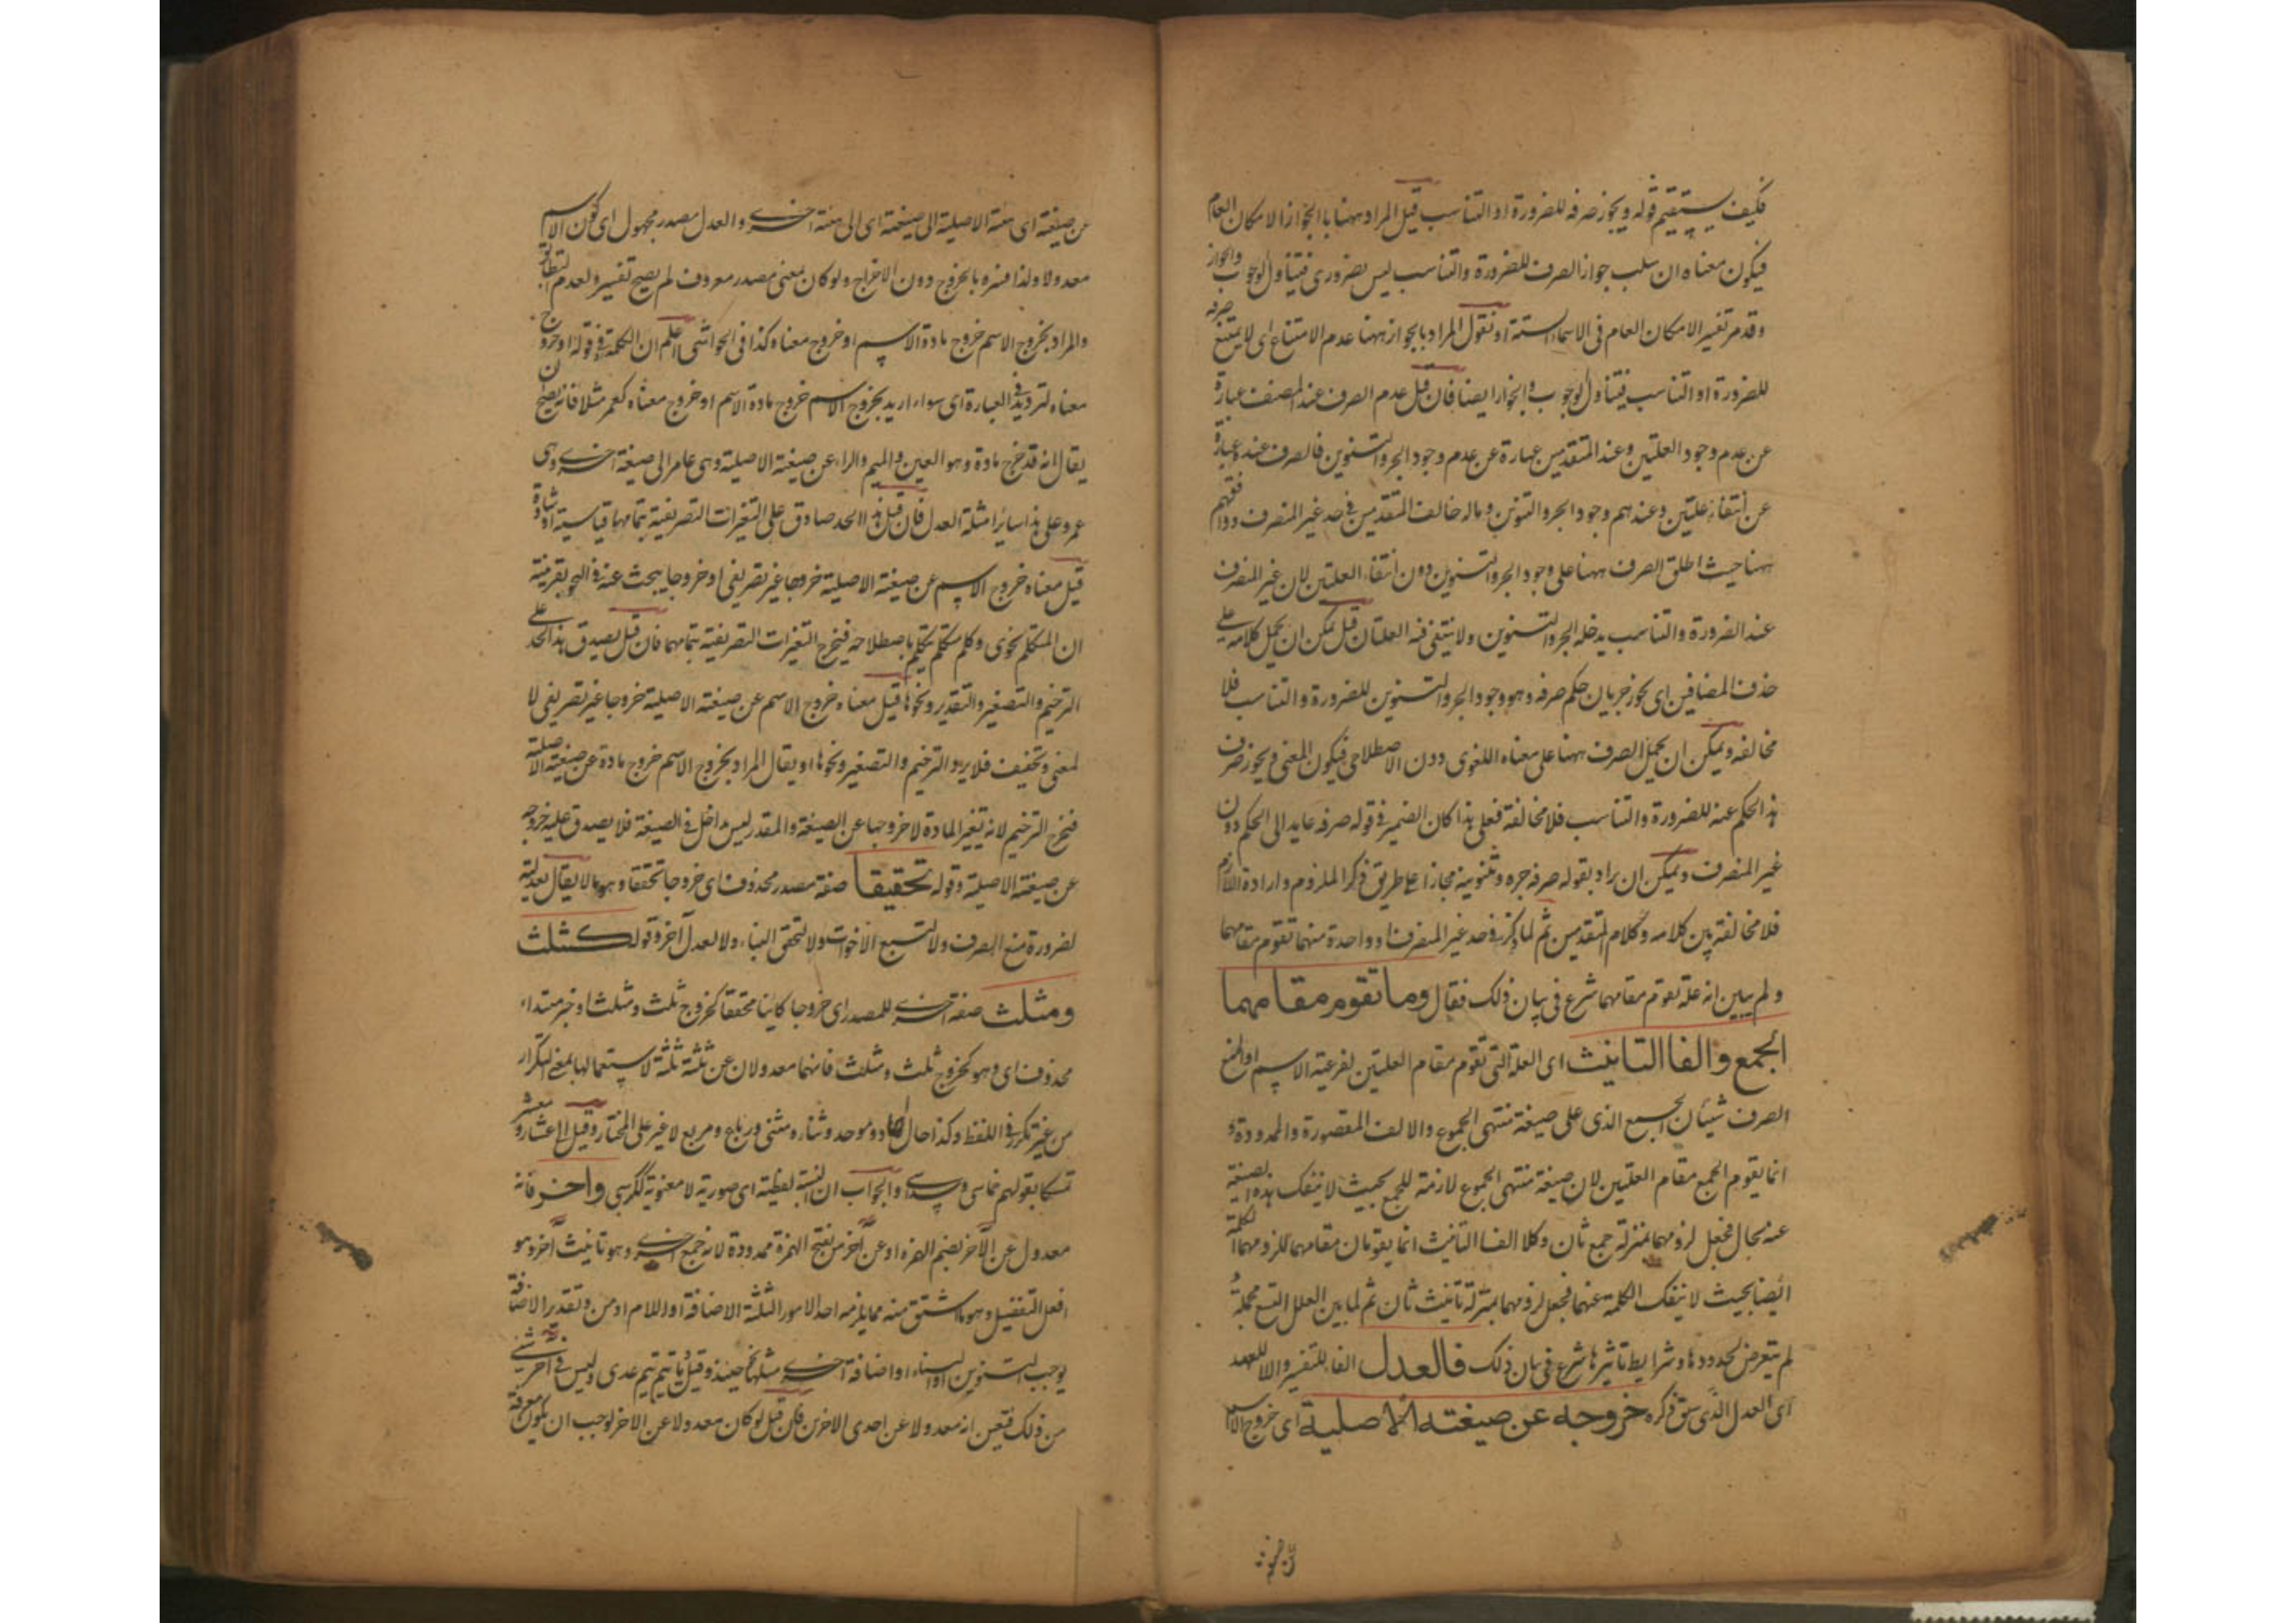 فكيف يستقيم قوله ويجوز صرفه للضرورة او التناسب قيل المراد ههنا بالجواز الامكان العام
فيكون معناه ان سلب جواز الصرف للضرورة والتناسب ليس بضروري فيتناول الوجوب والجواز
وقد مر تفسير الامكان العام في الاسماء الستة او نقول المراد بالجواز ههنا عدم الامتناع اي لا يمتنع صرفه
للضرورة او التناسب فيتناول الوجوب والجواز ايضا فان قيل عدم الصرف عند المصنف عبارة
عن عدم وجود العلتين وعند المتقدمين عبارة عن عدم وجود الجر والتنوين فالصرف عنده عبارة
عن انتفاء علتين وعندهم وجود الجر والتنوين وماله خالف المتقدمين في حد غير المنصرف ووافقهم
ههنا حيث اطلق الصرف ههنا على وجود الجر والتنوين دون انتفاء العلتين لان غير المنصرف
عند الضرورة والتناسب يدخله الجر والتنوين ولا ينتفي فيه العلتان قيل يمكن ان يحمل كلامه على
حذف المضافين اي يجوز جريان حكم صرفه وهو وجود الجر والتنوين للضرورة والتناسب فلا
مخالفة ويمكن ان يحمل الصرف ههنا على معناه اللغوي دون الاصطلاحي فيكون المعنى ويجوز صرف
هذا الحكم عنه للضرورة والتناسب فلا مخالفة فعلى هذا كان الضمير في قوله صرفه عايد الى الحكم دون
غير المنصرف ويمكن ان يراد بقوله صرفه جره وتنوينه مجازا على طريق ذكر الملزوم وارادة اللازم
فلا مخالفة بين كلامه وكلام المتقدمين ثم لما ذكر في حد غير المنصرف او واحدة منهما تقوم مقامهما
ولم يبين انه علة تقوم مقامهما شرع في بيان ذلك فقال وما تقوم مقامهما
الجمع والفا التانيث اي العلة التي تقوم مقام العلتين لفرعية الاسم او لمنع
الصرف شيئان الجمع الذي على صيغة منتهى الجموع والالف المقصورة والممدودة و
انما يقوم الجمع مقام العلتين لان صيغة منتهى الجموع لازمة للجمع بحيث لا ينفك هذه الصيغة
عنه بحال فجعل لزومهما بمنزلة جمع ثان وكلا الفا التانيث انما يقومان مقامهما للزومهما الكلمة
ايضا بحيث لا ينفك الكلمة عنهما فجعل لزومهما بمنزلة تانيث ثان ثم لما بين العلل التسع مجملة
لم يتعرض لحدودها وشرايط تاثيرها شرع في بيان ذلك فالعدل الفاء للتفسير واللام للعهد
اي العدل الذي سبق ذكره خروجه عن صيغته الاصلية اي خروج الاسم
عن صيغته اي هيئته الاصلية الى صيغته اي الى هيئة اخرى والعدل مصدر مجهول اي كون الاسم
معدولا ولذا فسره بالخروج دون الاخراج ولو كان بمعنى مصدر معروف لم يصح تفسيره لعدم التطابق
والمراد بخروج الاسم خروج مادة الاسم او خروج معناه كذا في الحواشي اعلم ان الكلمة في قوله او خروج
معناه لترديد في العبارة اي سواء اريد بخروج الاسم خروج مادة الاسم او خروج معناه كعمر مثلا فانه يصح ان
يقال انه قد خرج مادة وهو العين والميم والراء عن صيغته الاصلية وهي عامر الى صيغة اخرى وهي
عمر وعلى هذا سائر امثلة العدل فان قيل هذا الحد صادق على التغيرات التصريفية بتمامها قياسية او شاذة
قيل معناه خروج الاسم عن صيغته الاصلية خروجا غير تصريفي او خروجا يبحث عنه في النحو بقرينة
ان المتكلم نحوي وكل متكلم يتكلم باصطلاحه فيخرج التغيرات التصريفية بتمامها فان قيل يصدق هذا الحد على
الترخيم والتصغير والتقدير ونحوها قيل معناه خروج الاسم عن صيغته الاصلية خروجا غير تصريفي لا
لمعنى وتخفيف فلا يرد الترخيم والتصغير ونحوها او يقال المراد بخروج الاسم خروج مادة عن صيغته الاصلية
فيخرج الترخيم لانه تغيير المادة لا خروجها عن الصيغة والمقدر ليس داخل في الصيغة فلا يصدق عليه خروجه
عن صيغته الاصلية وقوله تحقيقا صفة مصدر محذوف اي خروجا تحققا وهو ما لا يقال بعدليته
لضرورة منع الصرف ولا لتتبع الاخوات ولا لتحقق البناء ولا لعدل آخر وقوله كثلث
ومثلث صفة اخرى للمصدر اي خروجا كاينا محققا كخروج ثلث ومثلث او خبر مبتداء
محذوف اي وهو كخروج ثلث ومثلث فانهما معدولان عن ثلثة ثلثة لاستعمالها بمعنى التكرار
من غير تكرر في اللفظ وكذا حال احاد وموحد وثناء ومثنى ورباع ومربع لا غير على المختار وقيل الى عشار ومعشر
تمسكا بقولهم خماسي وسداسي والجواب ان النسبة لفظية اي صورية لا معنوية ككرسي واخر فانه
معدول عن الآخر بضم الهمزة او عن آخر من بفتح الهمزة ممدودة لانه جمع اخرى وهو تانيث آخر وهو
افعل التفضيل وهو ما اشتق منه مما يلزمه احد الامور الثلثة الاضافة او اللام او من وتقدير الاضافة
يوجب التنوين او البناء او اضافة اخرى مثلها نحو حينئذ وقبل ويا تيم تيم عدي وليس في اخر شيء
من ذلك فتعين انه معدولا عن احدى الاخرين فان قيل لو كان معدولا عن الاخر لوجب ان يكون معرفة